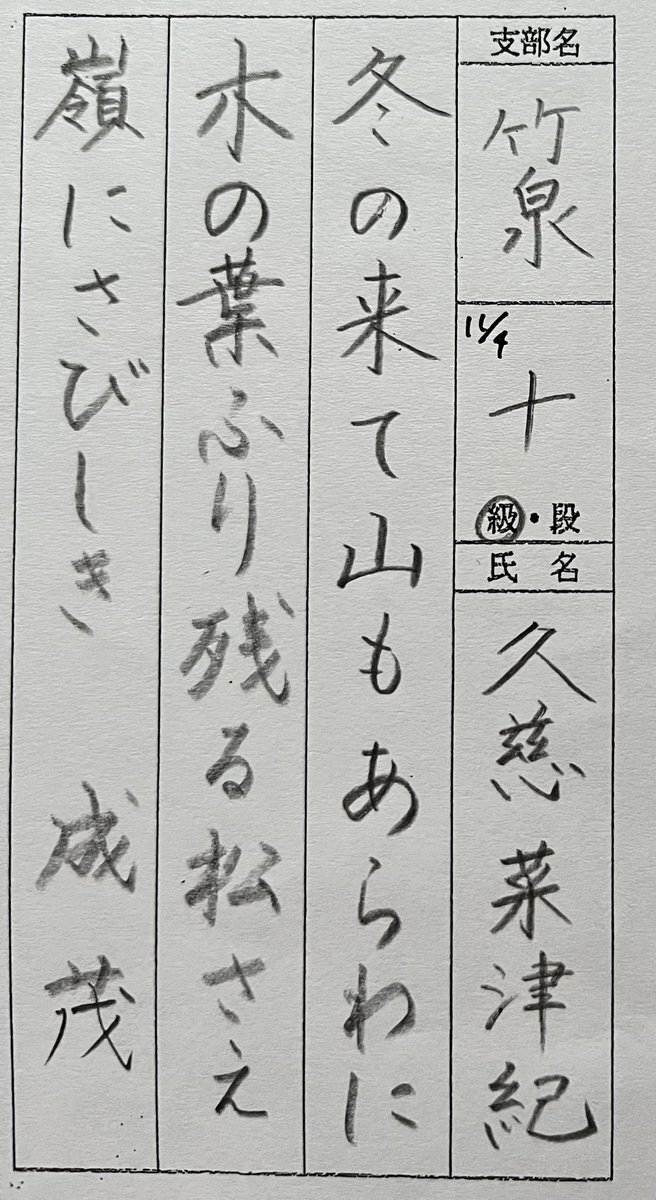 支部名
竹泉
11/4
十
級・段
氏名
久慈菜津紀
冬の来て山もあらわに
木の葉ふり残る松さえ
嶺にさびしき 成茂